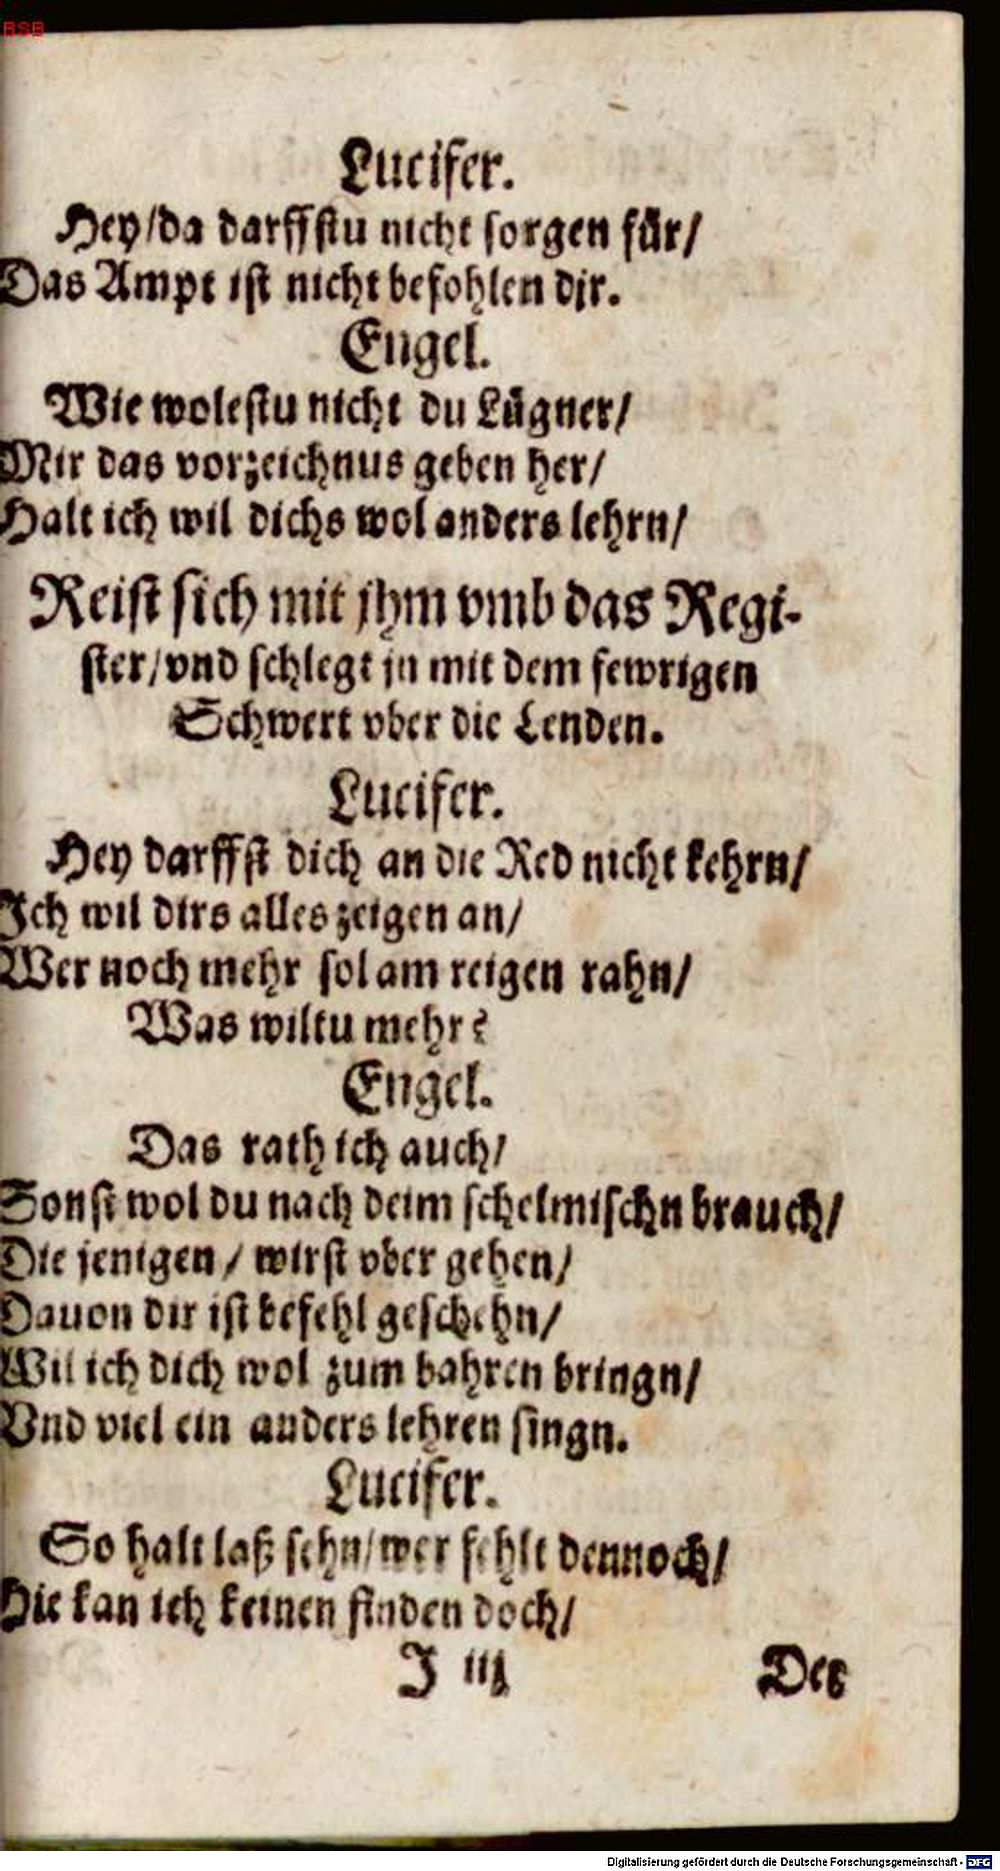 BSB
Lucifer.
Hey/da darffstu nicht sorgen für/
Das Ampt ist nicht befohlen djr.
Engel.
Wie wolestu nicht du Lügner/
Mir das vorzeichnus geben her/
Halt ich wil dichs wol anders lehrn/
Reist sich mit jhm vmb das Regi-
ster/vnd schlegt jn mit dem fewrigen
Schwert vber die Lenden.
Lucifer.
Hey darffst dich an die Red nicht kehrn/
Ich wil dirs alles zeigen an/
Wer noch mehr sol am reigen rahn/
Was wiltu mehr?
Engel.
Das rath ich auch/
Sonst wol du nach deim schelmischn brauch/
Die jenigen / wirst vber gehen/
Dauon dir ist befehl geschehn/
Wil ich dich wol zum bahren bringn/
Vnd viel ein anders lehren singn.
Lucifer.
So halt laß sehn/wer fehlt dennoch/
Hie kan ich keinen finden doch/
J iij Der
Digitalisierung gefördert durch die Deutsche Forschungsgemeinschaft - DFG